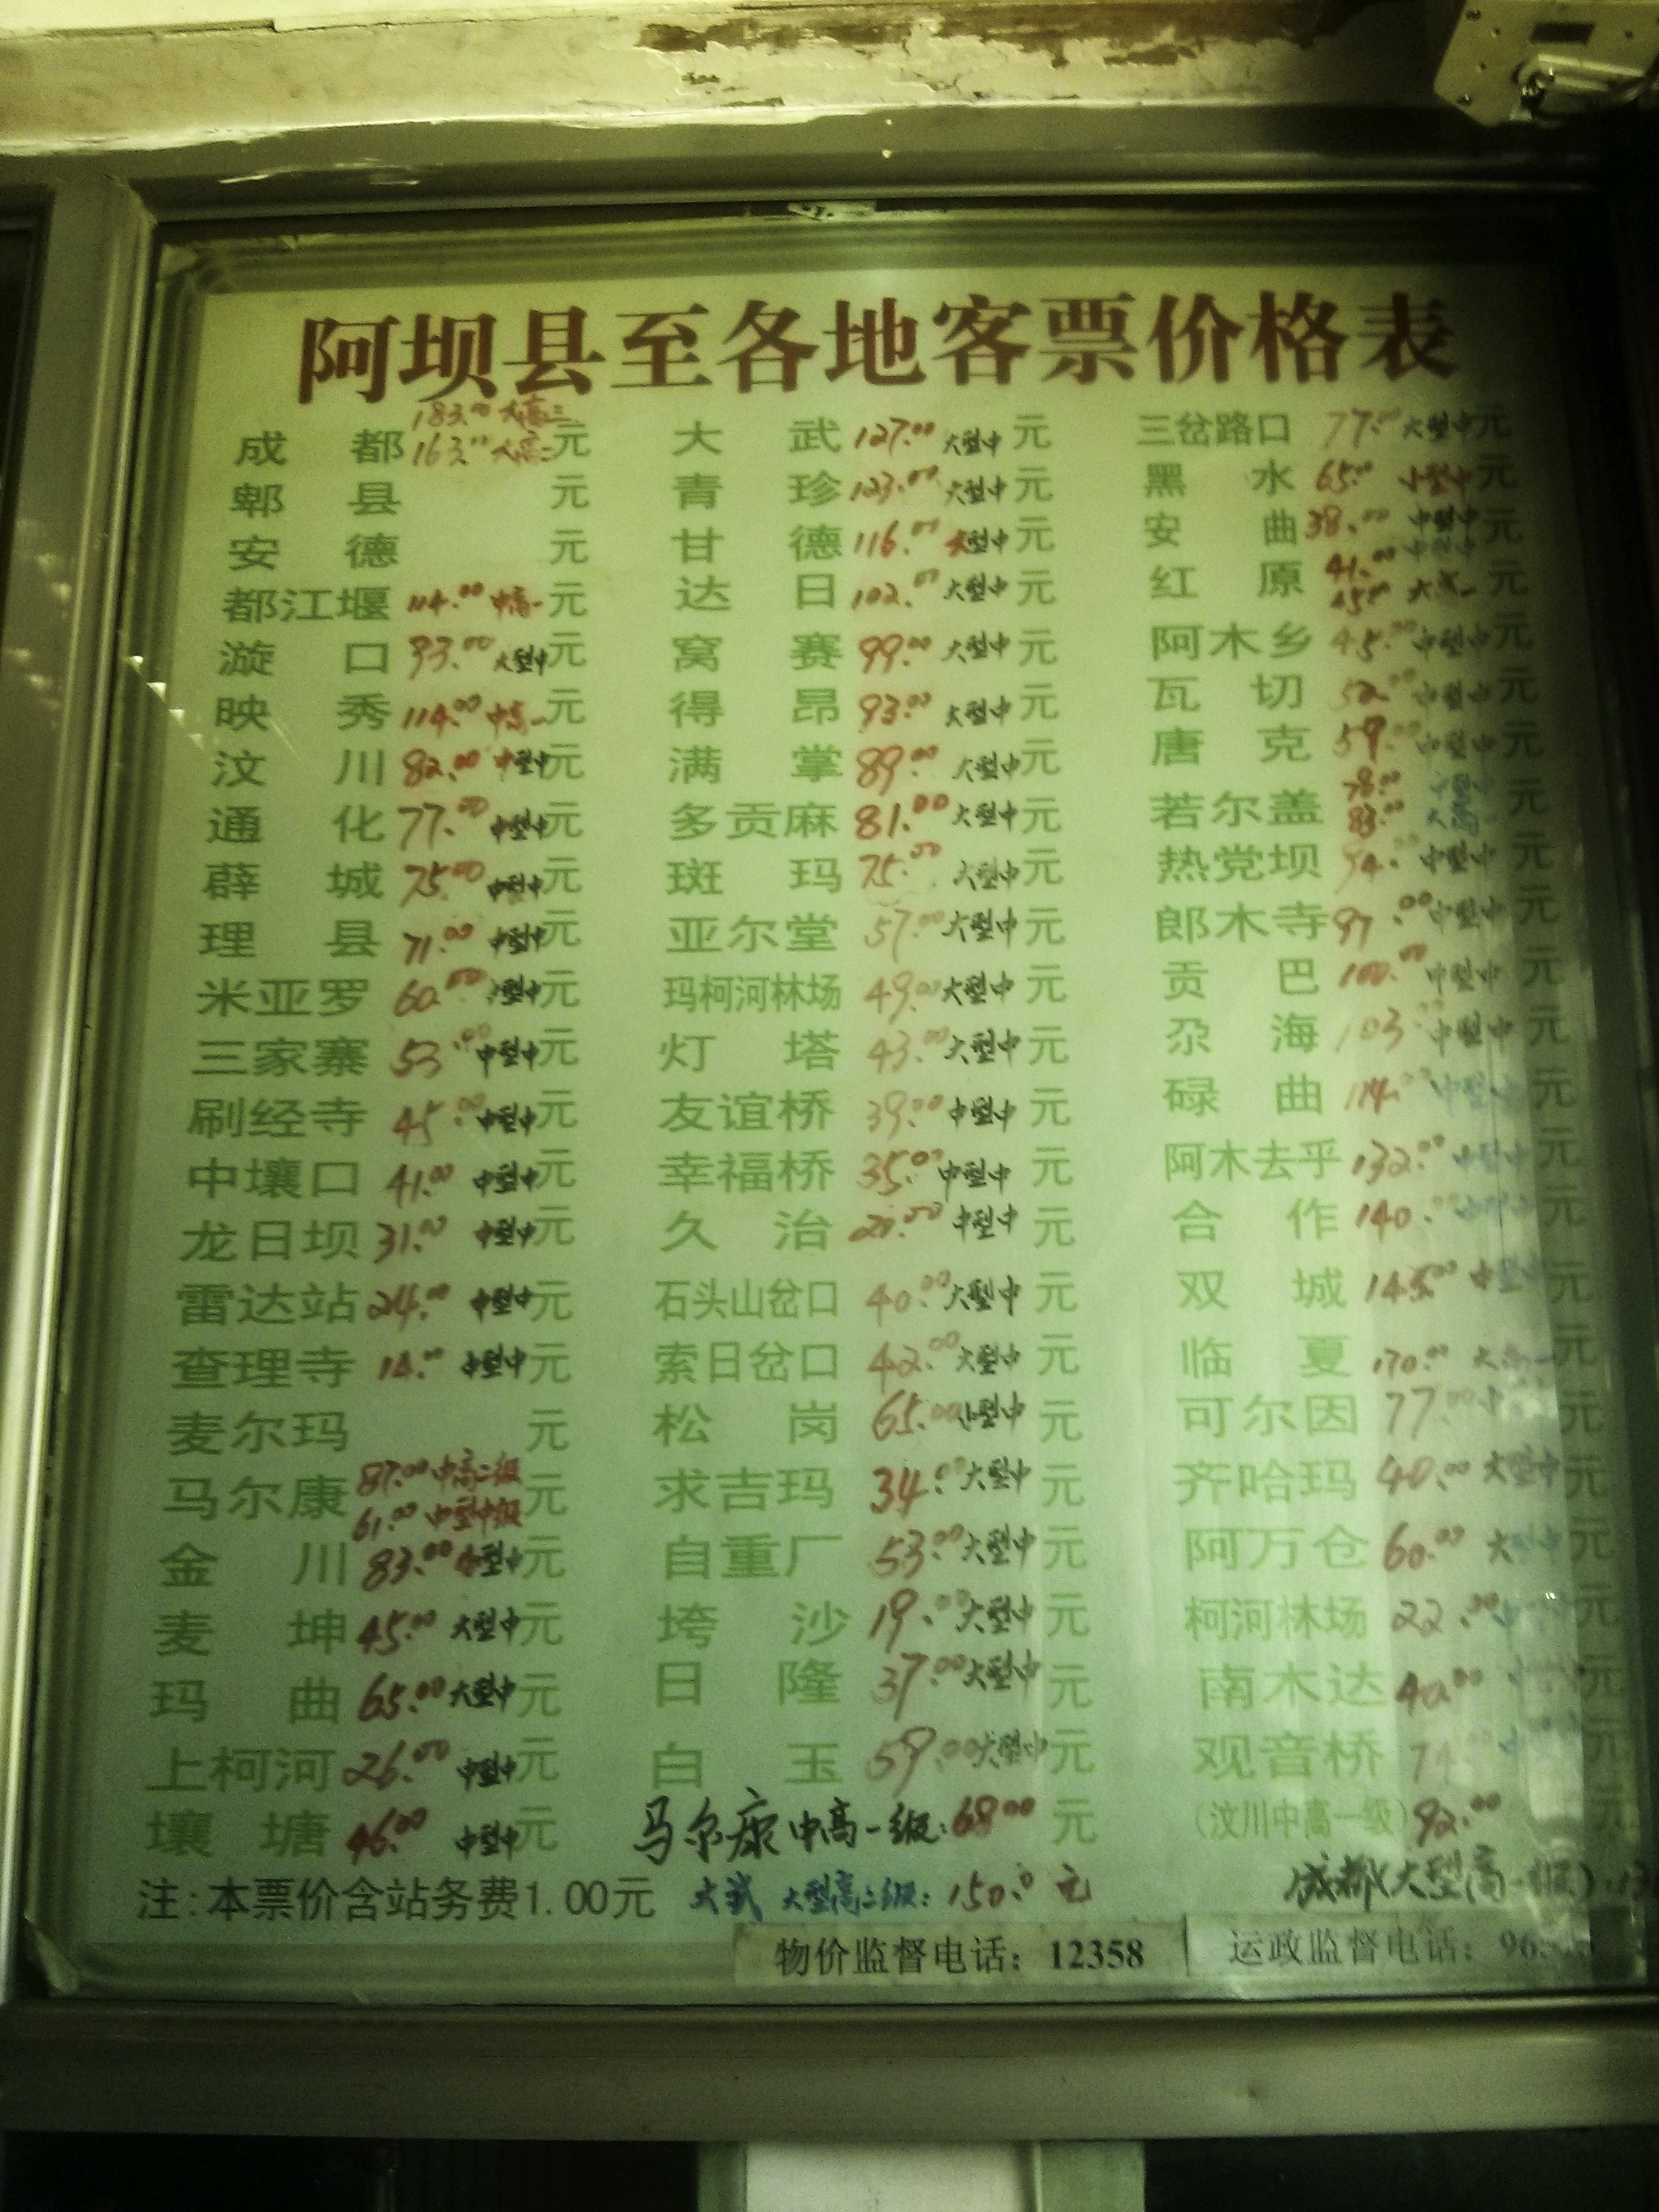 阿坝县至各地客票价格表
成都 183.00 大高三 163.00 大高二 元
郫县 元
安德 元
都江堰 114.00 中高一 元
漩口 93.00 大型中 元
映秀 114.00 中高一 元
汶川 82.00 中型中 元
通化 77.00 中型中 元
薛城 75.00 中型中 元
理县 71.00 中型中 元
米亚罗 60.00 中型中 元
三家寨 53.00 中型中 元
刷经寺 45.00 中型中 元
中壤口 41.00 中型中 元
龙日坝 31.00 中型中 元
雷达站 24.00 中型中 元
查理寺 14.00 中型中 元
麦尔玛 元
马尔康 87.00 中高二级 61.00 中型中级 元
金川 83.00 小型中 元
麦坤 45.00 大型中 元
玛曲 65.00 大型中 元
上柯河 26.00 中型中 元
壤塘 46.00 中型中 元
大武 127.00 大型中 元
青珍 123.00 大型中 元
甘德 116.00 大型中 元
达日 102.00 大型中 元
窝赛 99.00 大型中 元
得昂 93.00 大型中 元
满掌 89.00 大型中 元
多贡麻 81.00 大型中 元
斑玛 75.00 大型中 元
亚尔堂 57.00 大型中 元
玛柯河林场 49.00 大型中 元
灯塔 43.00 大型中 元
友谊桥 39.00 中型中 元
幸福桥 35.00 中型中 元
久治 20.00 中型中 元
石头山岔口 40.00 大型中 元
索日岔口 42.00 大型中 元
松岗 65.00 小型中 元
求吉玛 34.00 大型中 元
自重厂 53.00 大型中 元
垮沙 19.00 大型中 元
日隆 37.00 大型中 元
白玉 59.00 大型中 元
马尔康中高一级:68.00 元
三岔路口 77.00 大型中 元
黑水 65.00 小型中 元
安曲 38.00 中型中 元
红原 41.00 中型中 45.00 元
阿木乡 45.00 中型中 元
瓦切 52.00 中型中 元
唐克 59.00 中型中 元
若尔盖 78.00 中型中 83.00 大高一 元
热党坝 94.00 中型中 元
郎木寺 97.00 中型中 元
贡巴 100.00 中型中 元
尕海 103.00 中型中 元
碌曲 114.00 中型中 元
阿木去乎 132.00 中型中 元
合作 140.00 元
双城 145.00 中型中 元
临夏 170.00 大高一 元
可尔因 77.00 元
齐哈玛 40.00 大型中 元
阿万仓 60.00 元
柯河林场 22.00 元
南木达 40.00 元
观音桥 74.00 元
(汶川中高一级) 92.00 元
注:本票价含站务费1.00元
大武 大型高二级:150.0 元
成都(大型高一级):
物价监督电话:12358
运政监督电话: